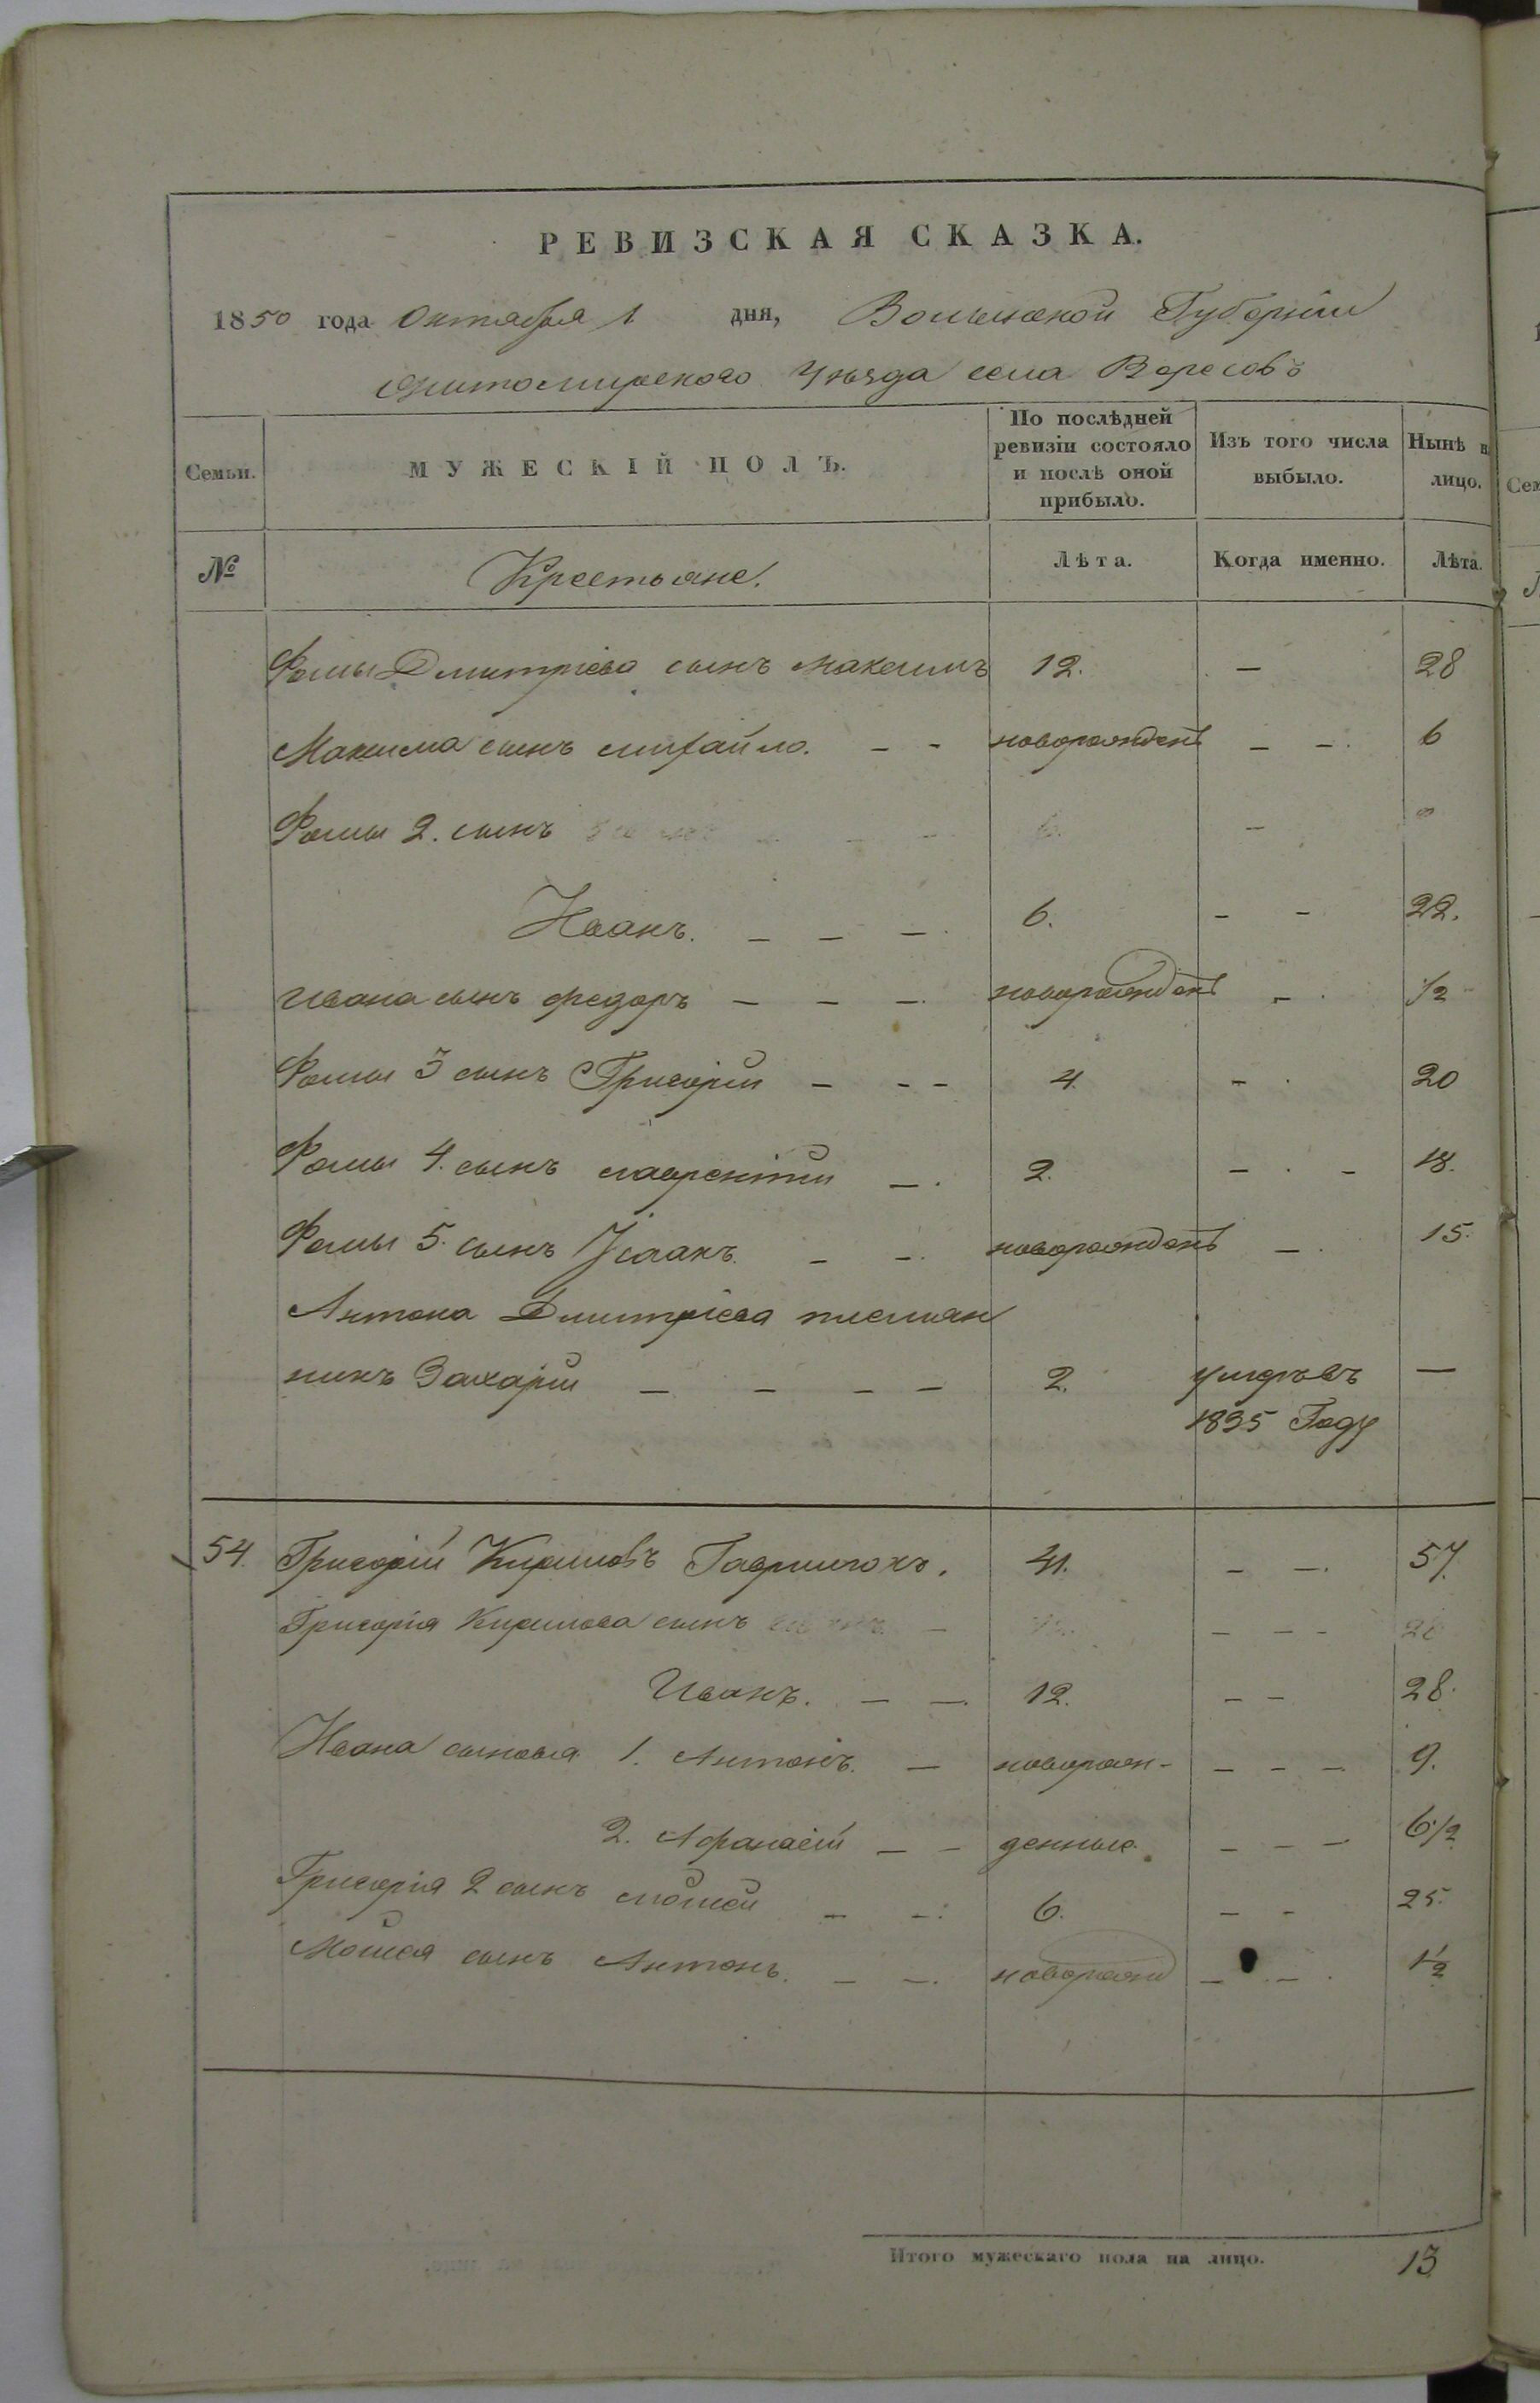 РЕВИЗСКАЯ СКАЗКА.
1850 года Октября 1 дня, Волынской Губерніи
Житомирского Уѣзда села Вересовъ
Семьи. МУЖЕСКІЙ ПОЛЪ. По послѣдней ревизіи состояло и послѣ оной прибыло. Изъ того числа выбыло. Нынѣ в лицо.
№ Крестьяне. Лѣта. Когда именно. Лѣта.
Фомы Дмитріева сынъ Максимъ 12. — 28
Максима сынъ Михайло. – – новорожденъ – –. 6
Фомы 2. сынъ
Иванъ. – – –. 6. – – 22.
Ивана сынъ Федоръ – – –. новорожденъ –. 1/2
Фомы 3 сынъ Григорій – – – 4 –. 20
Фомы 4. сынъ Лаврентій –. 2. –. – 18.
Фомы 5. сынъ Исаакъ. – –. новорожденъ –. 15.
Антона Дмитріева племян
никъ Захарій – – – – 2. умре въ —
1835 Году
54. Григорій Кириловъ Гаврилюкъ. 41. – –. 57.
Григорія Кирилова сынъ – – – –
Иванъ. – –. 12. – – 28.
Ивана сыновья 1. Антонъ. – новорож- – – –. 9.
2. Афанасій – – денные. – – – 6 1/2
Григорія 2 сынъ Мойсей – –. 6. – – 25.
Мойсея сынъ Антонъ. – –. новорожд – –. 1 1/2
Итого мужескаго пола на лицо. 13